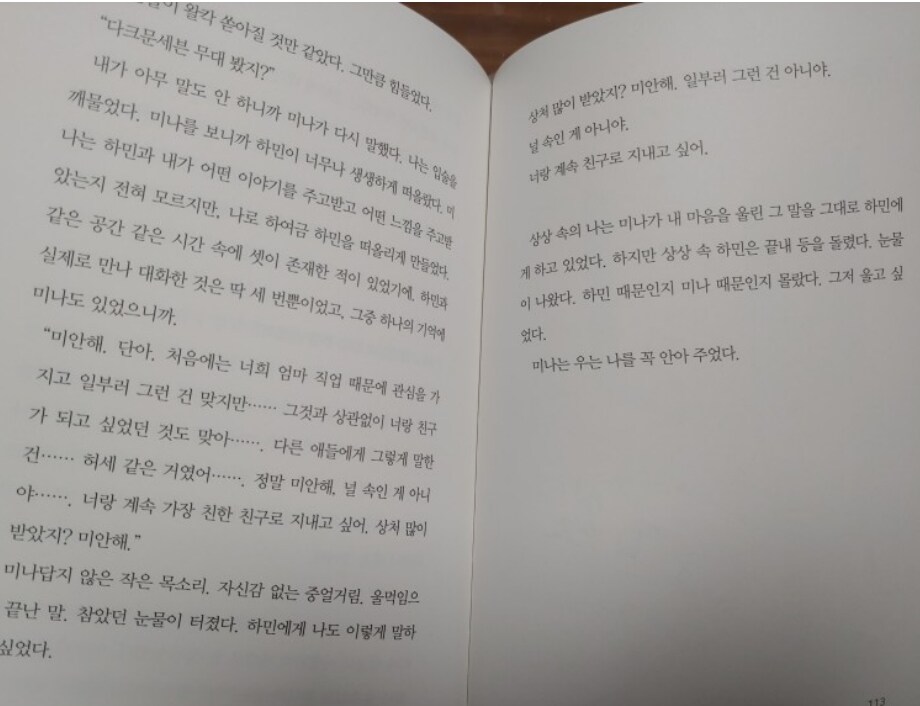 왈칵 쏟아질 것만 같았다. 그만큼 힘들었다.
“다크문세븐 무대 봤지?”
내가 아무 말도 안 하니까 미나가 다시 말했다. 나는 입술을
깨물었다. 미나를 보니까 하민이 너무나 생생하게 떠올랐다. 미
나는 하민과 내가 어떤 이야기를 주고받고 어떤 느낌을 주고받
았는지 전혀 모르지만, 나로 하여금 하민을 떠올리게 만들었다.
같은 공간 같은 시간 속에 셋이 존재한 적이 있었기에. 하민과
실제로 만나 대화한 것은 딱 세 번뿐이었고, 그중 하나의 기억에
미나도 있었으니까.
“미안해. 단아. 처음에는 너희 엄마 직업 때문에 관심을 가
지고 일부러 그런 건 맞지만…… 그것과 상관없이 너랑 친구
가 되고 싶었던 것도 맞아……. 다른 애들에게 그렇게 말한
건…… 허세 같은 거였어……. 정말 미안해. 널 속인 게 아니
야……. 너랑 계속 가장 친한 친구로 지내고 싶어. 상처 많이
받았지? 미안해.”
미나답지 않은 작은 목소리. 자신감 없는 중얼거림. 울먹임으
끝난 말. 참았던 눈물이 터졌다. 하민에게 나도 이렇게 말하
싶었다.
상처 많이 받았지? 미안해. 일부러 그런 건 아니야.
널 속인 게 아니야.
너랑 계속 친구로 지내고 싶어.
상상 속의 나는 미나가 내 마음을 울린 그 말을 그대로 하민에
게 하고 있었다. 하지만 상상 속 하민은 끝내 등을 돌렸다. 눈물
이 나왔다. 하민 때문인지 미나 때문인지 몰랐다. 그저 울고 싶
었다.
미나는 우는 나를 꼭 안아 주었다.
113